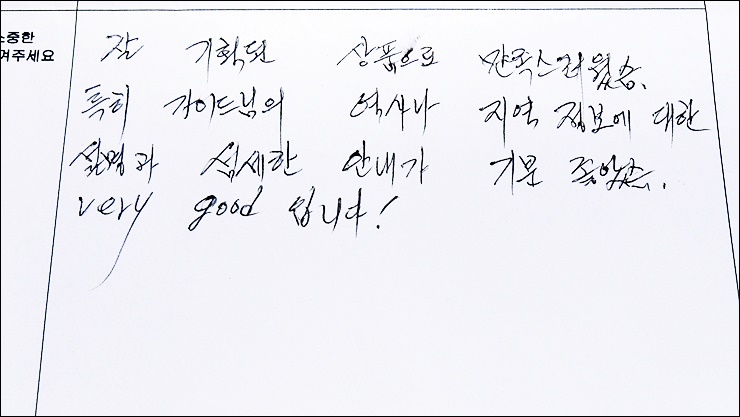 소중한
겨주세요
잘 기획된 상품으로 만족스러웠음.
특히 가이드님의 역사나 지역 정보에 대한
설명과 섬세한 안내가 기분 좋았음.
very good 입니다!